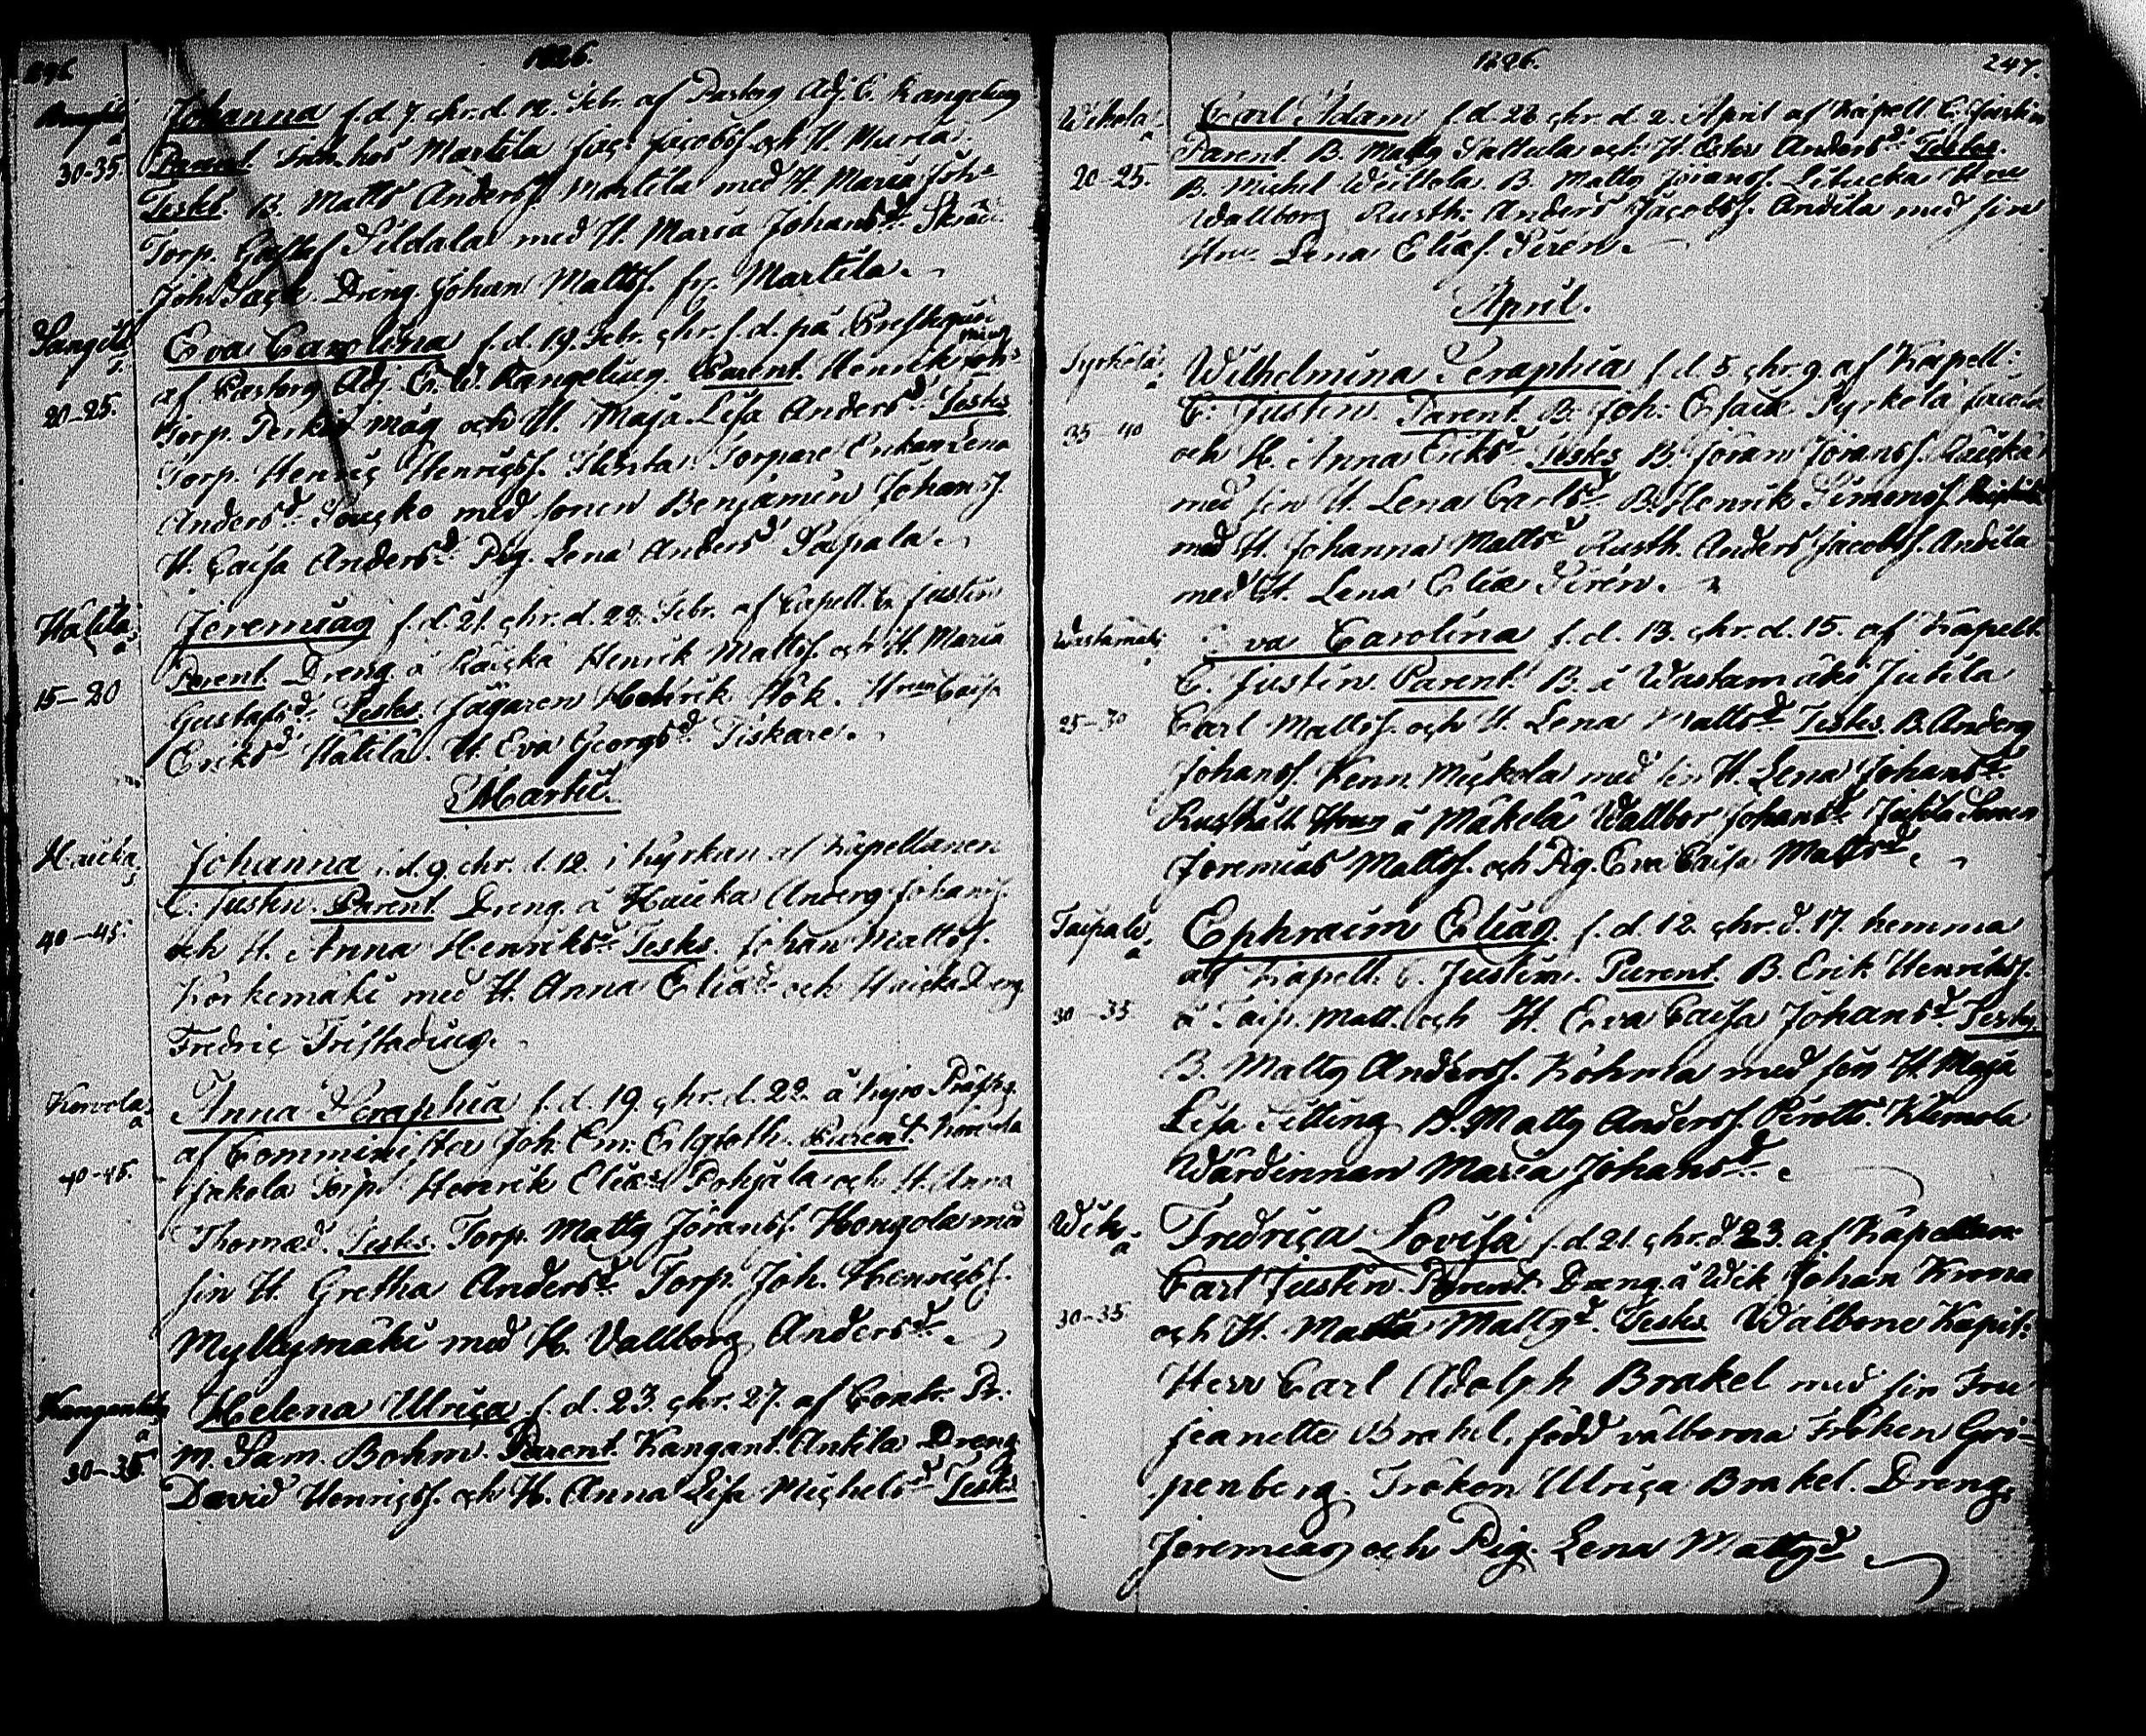 246
1826.
30-35.
Johanna f. d. 7. chr. d. 12. Febr. af Pastors Adj. E. Rangelius
Parent. Inh. hos Martila Jac. Jacobss. och H. Maria
Testes. B. Matts Anderss. Martila med H. Maria Joh:s
Torp. Gustaf Sildala med H. Maria Johansd:r
Joh. Dreng Johan Mattss. fr. Martila.
20-25.
Eva Carolina f. d. 19. Febr. chr. s. d. på Prestegår
af Pastors Adj. E. W. Rangelius. Parent. Henrik
Torp. måg och H. Maja Lisa Andersd:r Testes
Torp. Henric Henricss. Torpare Lena
Andersd:r Soucko med sonen Benjamin Johanss.
H. Caisa Andersd:r Pig. Lena Andersd:r Saipala.
Hatila
15-20
Jeremias f. d. 21. chr. d. 22. Febr. af Capell. C. Justin
Parent. Dreng å Raicka Henrik Mattss. och H. Maria
Gustafsd:r Testes. Jägaren Henrik Hök. H:run Caisa
Eriksd:r Hatila. H. Eva Georgsd:r Tiskare.
Martii.
Haicka
40-45.
Johanna f. d. 9. chr. d. 12. i Kyrkan af Kapellanen
C. Justin. Parent. Dreng. å Haicka Anders Johanss.
och H. Anna Henriksd:r Testes. Johan Mattss.
Korkemäki med H. Anna Eliæd:r och Haicka Dreng
Fredric Fristadius.
Korvola
40-45.
Anna Seraphia f. d. 19. chr. d. 22. å Kyro Prästg.
af Comminister Joh. Em. Elgfoth. Parent. Korvola
Jakola Torp. Henrik Eliæss. Pohjala och H. Anna
Thomæd. Testes. Torp. Matts Jöranss. Hongola med
sin H. Gretha Andersd:r Torp. Joh. Henricss.
Myllymäki med H. Vallborg Andersd:r
Kangantila
30-35.
Helena Ulrica f. d. 23. chr. 27. af Contr. Pr.
M. Sam. Bohm. Parent. Kangant. Antila Dreng
David Henricss. och H. Anna Lisa Michelsd:r Testes
1826.
247.
20-25.
Carl Adam f. d. 28 chr. d. 2. April af Kapell. C. Justin
Parent. B. Matts Sattula och H. Ester Andersd:r Testes.
B. Michel B. Matts Jöranss. Hru
Wallborg Rusth. Anders Jacobss. Andila med sin
Hru Lena Eliæs. Sirén.
April.
Pyrkölä
35-40
Wilhelmina Seraphia f. d. 5 chr. 9. af Kapell:
C: Justin. Parent. B. Joh: Esaiæ Pyrkölä
och H. Anna Eriksd:r Testes. B. Jöran Jöranss. Raicka
med sin H. Lena Carlsd:r B. Henrik Simonss.
med H. Johanna Mattsd:r Rusth. Anders Jacobss. Andila
med H. Lena Eliæ Sirén.
Wastamäki
25-30
Eva Carolina f. d. 13. chr. d. 15. af Kapell.
C. Justin. Parent. B. å Wastamäki Jutila
Carl Mattss. och H. Lena Mattsd:r Testes. B. Anders
Johanss. Kenn. Mickola med sin H. Lena Johansd:r
Rusthåll. Hrun å Mäkelä Wallbor Johansd:r Jutila Sonen
Jeremias Mattss. och Pig. Eva Caisa Mattsd:r.
Taipale
30-35
Ephraim Elias f. d. 12. chr. d. 17. hemma
af Kapell. C. Justin. Parent. B. Erik Henrikss.
å Taip. Matt. och H. Eva Caisa Johansd:r Testes
B. Matts Anderss. Köhmla med sin H. Maja
Lisa Sitting B. Matts Anderss. Perott. Klemola
Wärdinnan Maria Johansd:r.
Wik
å
30-35
Fredrica Lovisa f. d. 21. chr. d. 23. af Kapellan
Carl Justin. Parent. Dreng. å Wik Johan Krona
och H. Matta Mattsd:r. Testes. Wälborne Kapit:
Herr Carl Adolph Brakel med sin Fru
Jeanette Brakel, född välborna Fröken Gri-
penberg. Fröken Ulrica Brakel. Dreng.
Jeremias och Pig. Lena Mattsd:r